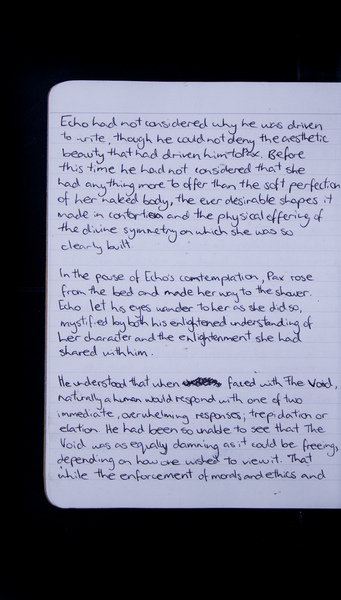 Echo had not considered why he was driven
to write, though he could not deny the aesthetic
beauty that had driven him to Pax. Before
this time he had not considered that she
had anything more to offer than the soft perfection
of her naked body, the ever desirable shapes it
made in contortion and the physical offering of
the divine symmetry on which she was so
clearly built.
In the pause of Echo's contemplation, Pax rose
from the bed and made her way to the shower.
Echo let his eyes wander to her as she did so,
mystified by both his enlightened understanding of
her character and the enlightenment she had
shared with him.
He understood that when faced with The Void,
naturally a human would respond with one of two
immediate, overwhelming responses; trepidation or
elation. He had been so unable to see that The
Void was as equally damning as it could be freeing,
depending on how one wished to view it. That
while the enforcement of morals and ethics and